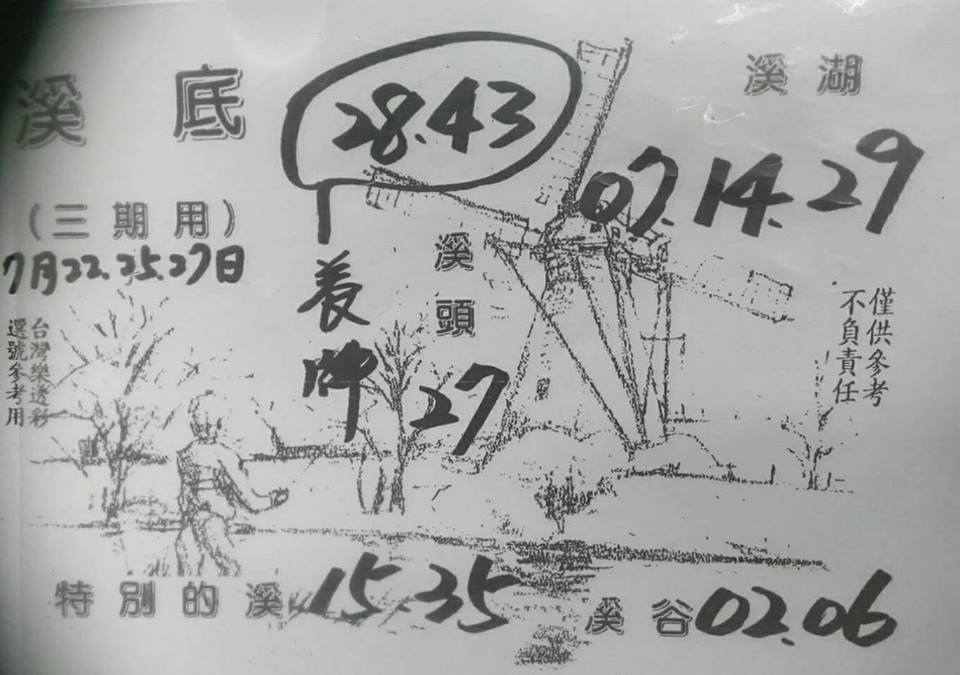 溪底
28.43
溪湖
07.14.29
(三期用)
7月22.25.27日
養牌
溪頭
27
僅供參考
不負責任
台灣樂透彩
選號參考用
特別的溪
15.35
溪谷
02.06